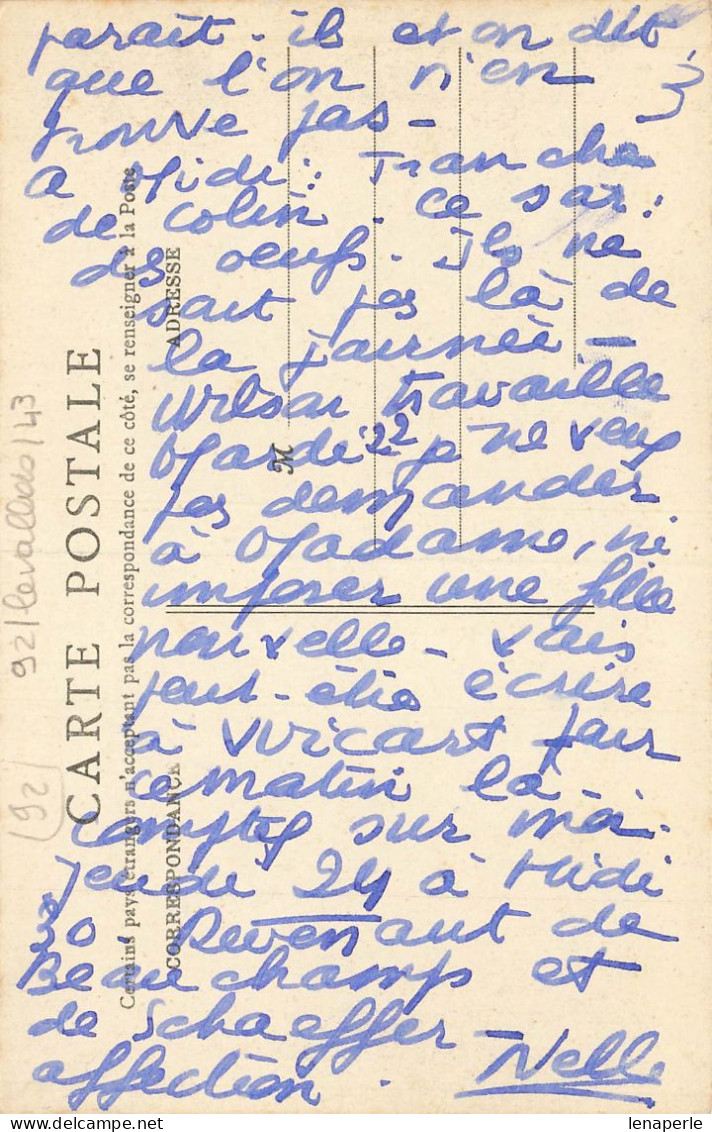 paraît-il et on dit
que l'on n'en
trouve pas -
a Midi: Tranche
de colin. ce soir:
des oeufs. Ils ne
sont pas là de
la journée -
travaille
Mardi 22 je ne veux
pas demander
à Madame, ni
imposer une fille
nouvelle - vais
peut-être écrire
à Wicart pour
ce matin là -
comptez sur moi
jeudi 24 à Midi
30 Revenant de
Beauchamps et
de Schaeffer
affection. Nelle
CARTE POSTALE
Certains pays étrangers n'acceptant pas la correspondance de ce côté, se renseigner à la Poste
CORRESPONDANCE
ADRESSE
M
92/Levallois/43
92
lenaperle